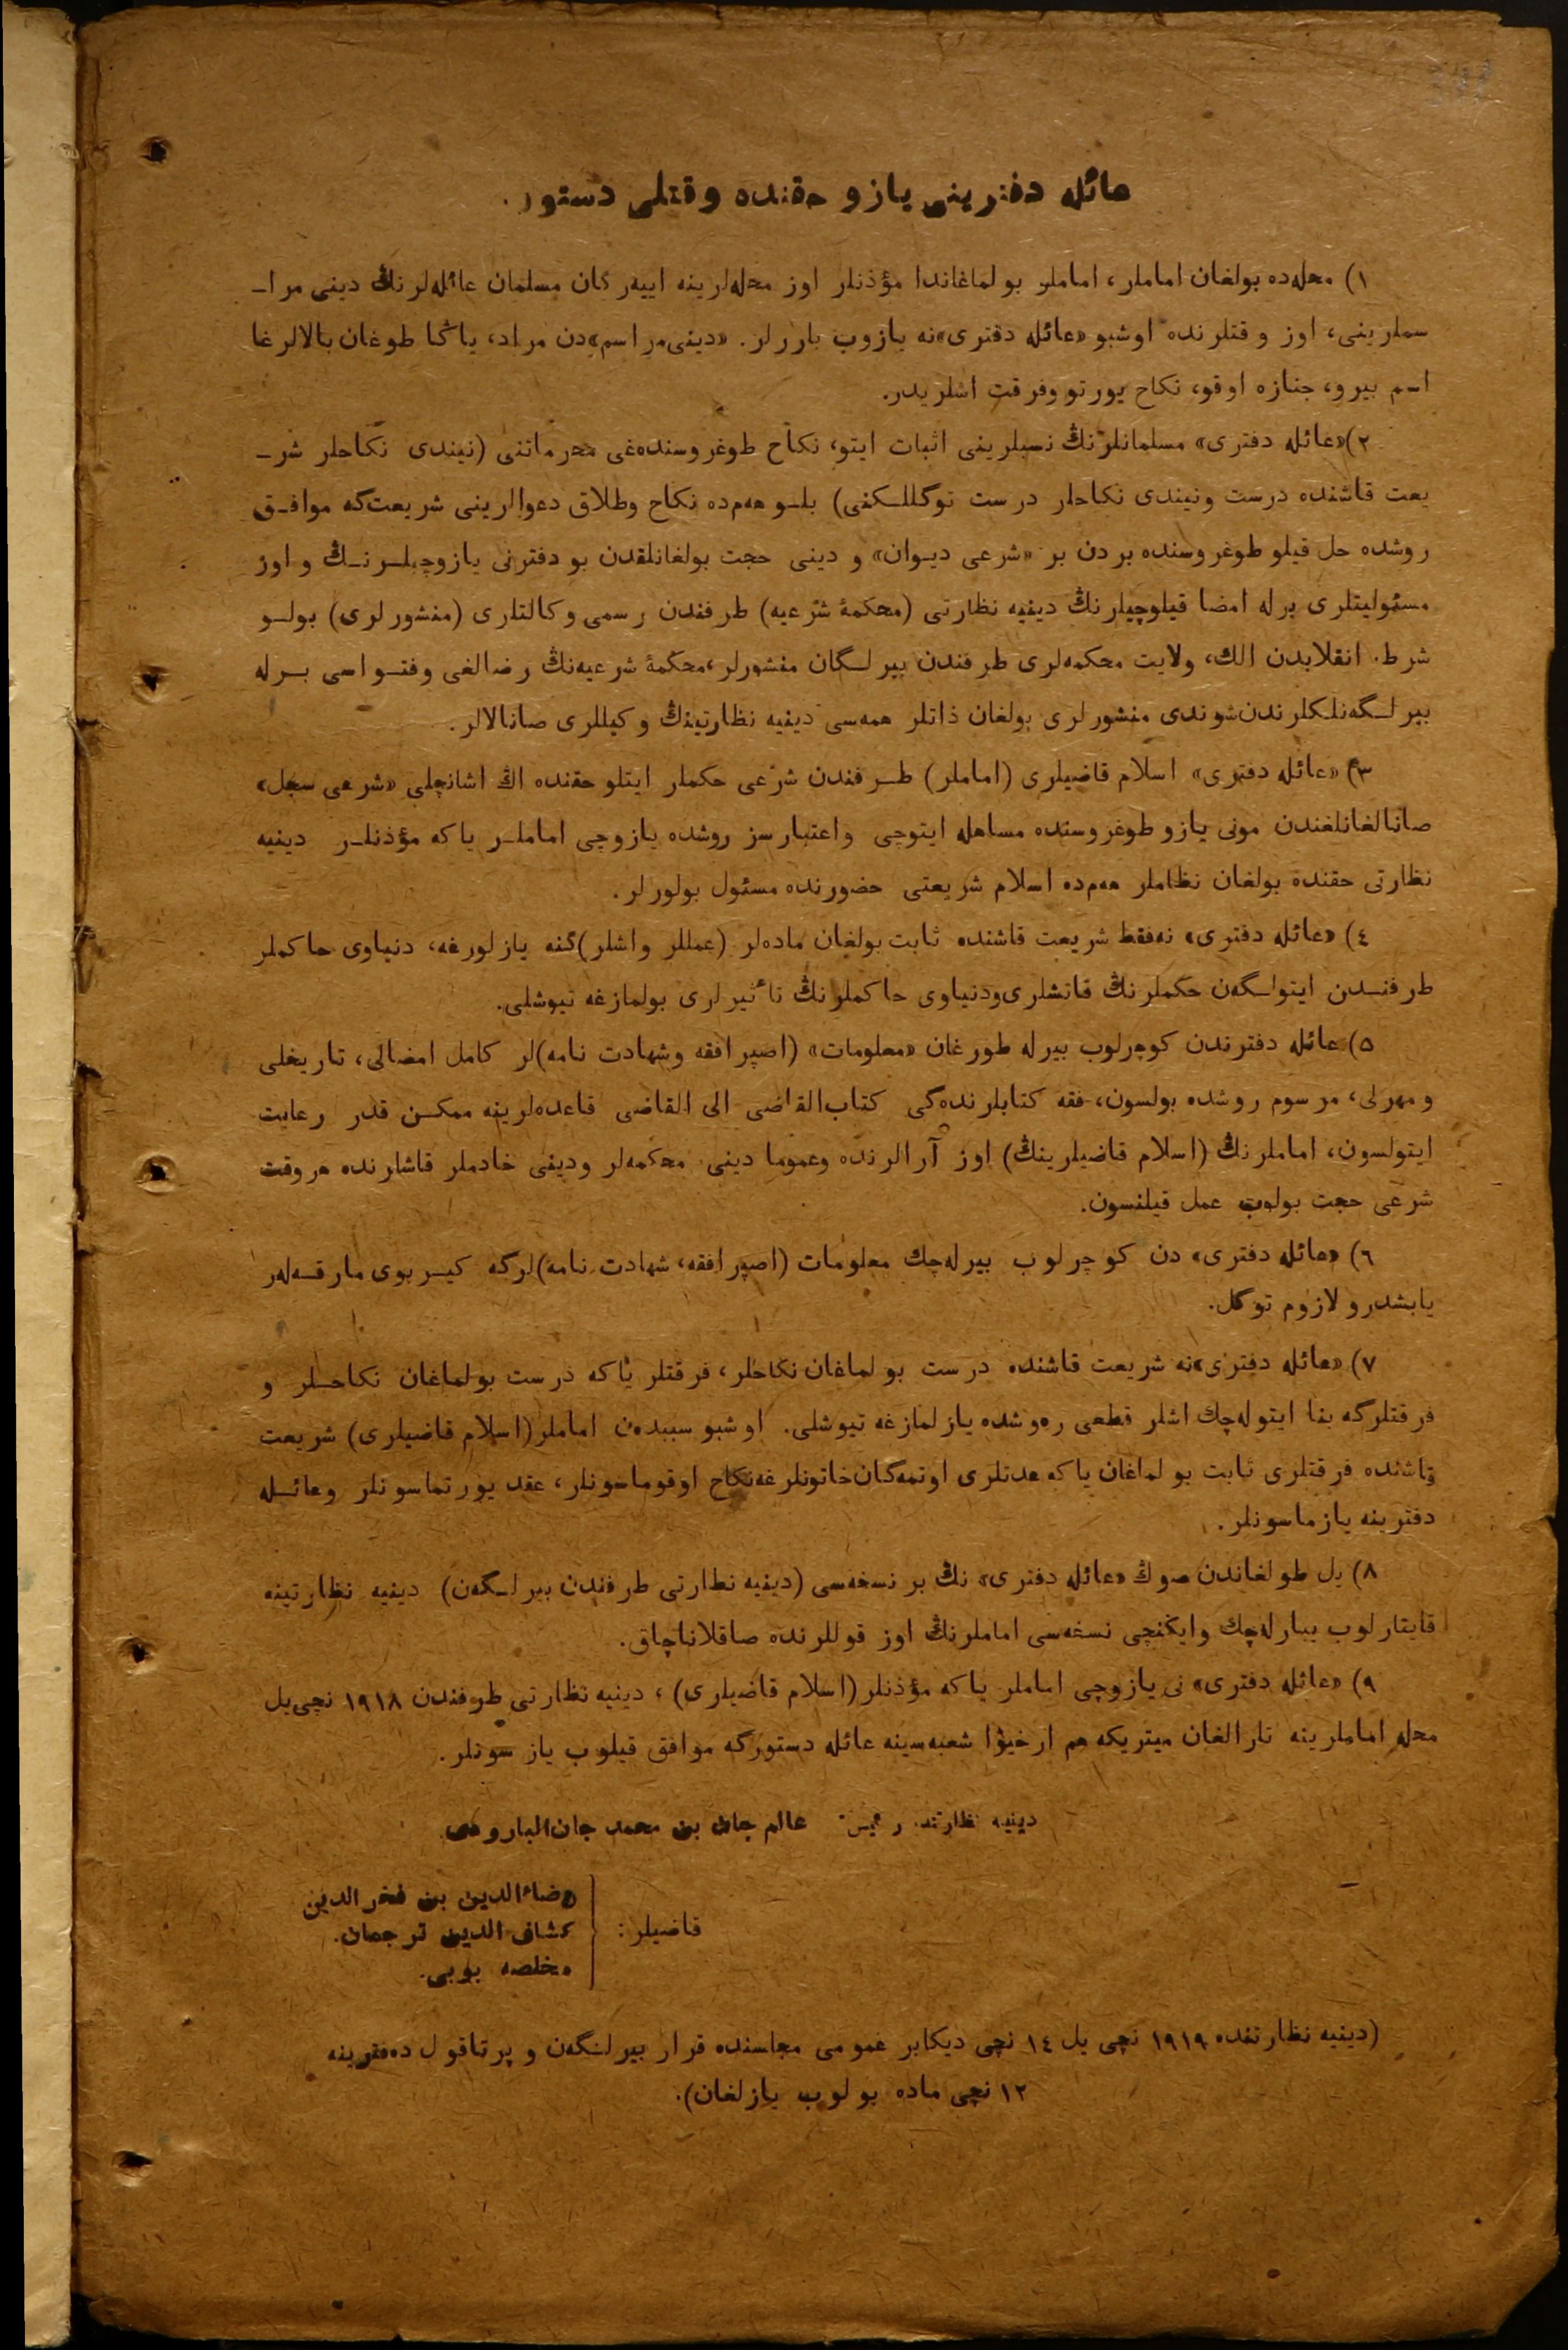 عائله دفترینی یازو حقنده وقتلی دستور.
١) محله‌ده بولغان اماملر، اماملر بولماغاندا مؤذنلر اوز محله‌لرینه اییه‌رگان مسلمان عائله‌لرنڭ دینی مرا‌ـ
سملرینی، اوز وقتلرنده اوشبو «عائله دفتری»نه یازوب باررلر. «دینی مراسم»دن مراد، یاڭا طوغان بالالرغا
اسم بیرو، جنازه اوقو، نکاح یورتو وفرقت اشلریدر.
٢) «عائله دفتری» مسلمانلرنڭ نسبلرینی اثبات ایتو، نکاح طوغروسنده‌غی محرماتنی (نیندی نکاحلر شر‌ـ
یعت قاشنده درست ونیندی نکاحلر درست توگللـکنی) بلـو هه‌م‌ده نکاح وطلاق دعوالرینی شریعت‌گه موافـق
روشده حل قیلو طوغروسنده بردن بر «شرعی دیـوان» و دینی حجت بولغانلقدن بو دفترنی یازوچیلـرنـڭ واوز
مسئولیتلری برله امضا قیلوچیلرنڭ دینیه نظارتی (محکمهٔ شرعیه) طرفندن رسمی وکالتلری (منشورلری) بولـو
شرط. انقلابدن الك، ولایت محکمه‌لری طرفندن بیرلـگان منشورلر، محکمهٔ شرعیه‌نڭ رضالغی وفتـواسی بـرله
بیرلـگه‌نلکلرندن شوندی منشورلری بولغان ذاتلر همه‌سی دینیه نظارتینڭ وکیللری صانالالر.
٣) «عائله دفتری» اسلام قاضیلری (اماملر) طـرفندن شرعی حکملر ایتلو حقنده اڭ اشانچلی «شرعی سجل»
صانالغانلغندن مونی یازو طوغروسنده مساهله ایتوچی واعتبارسز روشده یازوچی اماملـر یاکه مؤذنلـر دینیه
نظارتی حقنده بولغان نظاملر هه‌م‌ده اسلام شریعتی حضورنده مسئول بولورلر.
٤) «عائله دفتری» نه‌فقط شریعت قاشنده ثابت بولغان ماده‌لر (عمللر واشلر)گنه یازلورغه، دنیاوی حاکملر
طرفنـدن ایتولـگه‌ن حکملرنڭ قاتشلری‌ودنیاوی حاکملرنڭ تأثیرلری بولمازغه تیوشلی.
٥) عائله دفترندن کوچرلوب بیرله طورغان «معلومات» (اصپرافقه وشهادت نامه)لر کامل امضالی، تاریخلی
و مهرلی، مرسوم روشده بولسون، فقه کتابلرنده‌گی کتاب‌القاضی الی القاضی قاعده‌لرینه ممکـن قدر رعایت
ایتولسون، اماملرنڭ (اسلام قاضیلرینڭ) اوز آرالرنده وعموما دینی محکمه‌لر ودینی خادملر قاشلرنده هروقت
شرعی حجت بولوب عمل قیلنسون.
٦) «عائله دفتری» دن کوچرلوب بیرله‌چك معلومات (اصپرافقه، شهادت نامه)لرگه کیـربوی مارقـه‌لر
یابشدرو لازوم توگل.
٧) «عائله دفتری»نه شریعت قاشنده درست بولماغان نکاحلر، فرقتلر یاکه درست بولماغان نکاحـلر و
فرقتلرگه بنا ایتوله‌چك اشلر قطعی ره‌وشده یازلمازغه تیوشلی. اوشبو سببده‌ن اماملر (اسلام قاضیلری) شریعت
قاشنده فرقتلری ثابت بولماغان یاکه عدتلری اوتمه‌گان خاتونلرغه نکاح اوقوماسونلر، عقد یورتماسونلر وعائـله
دفترینه یازماسونلر.
٨) یل طولغاندن صوڭ «عائله دفتری» نڭ بر نسخه‌سی (دینیه نظارتی طرفندن بیرلـگه‌ن) دینیه نظارتینه
قایتارلوب یبارله‌چك وایکنچی نسخه‌سی اماملرنڭ اوز قوللرنده صاقلاناچاق.
٩) «عائله دفتری» نی یازوچی اماملر یاکه مؤذنلر (اسلام قاضیلری)، دینیه نظارتی طرفندن ١٩١٨ نچی یل
محله اماملرینه تارالغان میتریکه هم ارخیوا شعبه‌سینه عائله دستورگه موافق قیلوب یازسونلر.
دینیه نظارتی رئیس عالم جان بن محمد جان البارودی
قاضیلر:
رضاءالدین بن فخرالدین
کشاف الدین ترجمان.
مخلصه بوبی.
(دینیه نظارتنده ١٩١٩ نچی یل ١٤ نچی دیکابر عمومی مجلسنده قرار بیرلـنگه‌ن و پرتاقول ده‌فترینه
١٢ نچی ماده بولوب یازلغان).